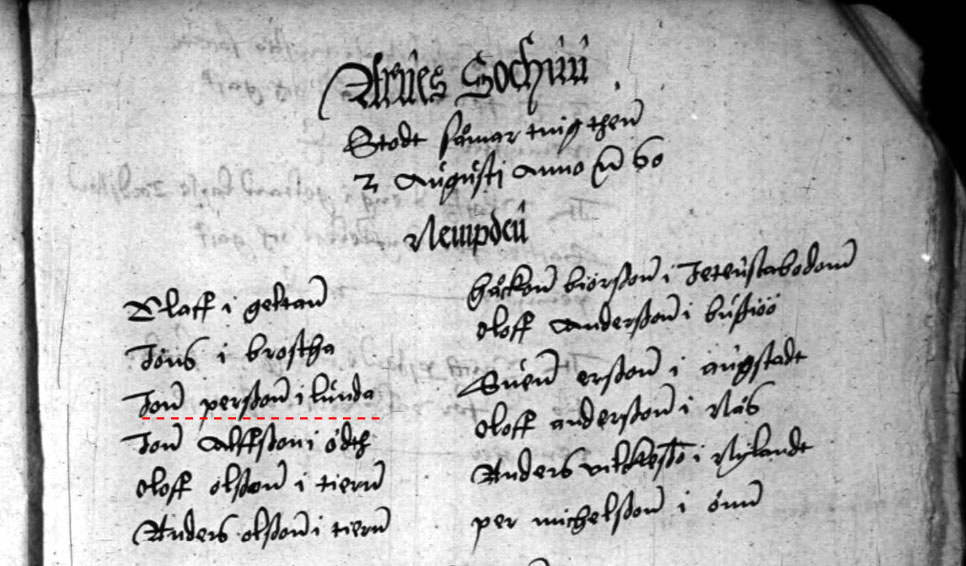 Arnes Sochnn
Stodt såmar tingh then
2 Augusti Anno 60
Nempden
Olaff i gektan
Jöns i brostha
Jon persson i lunda
Jon Alffsson i ödh
oloff olsson i tiern
Anders olsson i tiern
håckon biörsson i
oloff andersson i busiöö
Suen erson i ångstadt
oloff andersson i Näs
Anders i Nylandt
per michelsson i önn